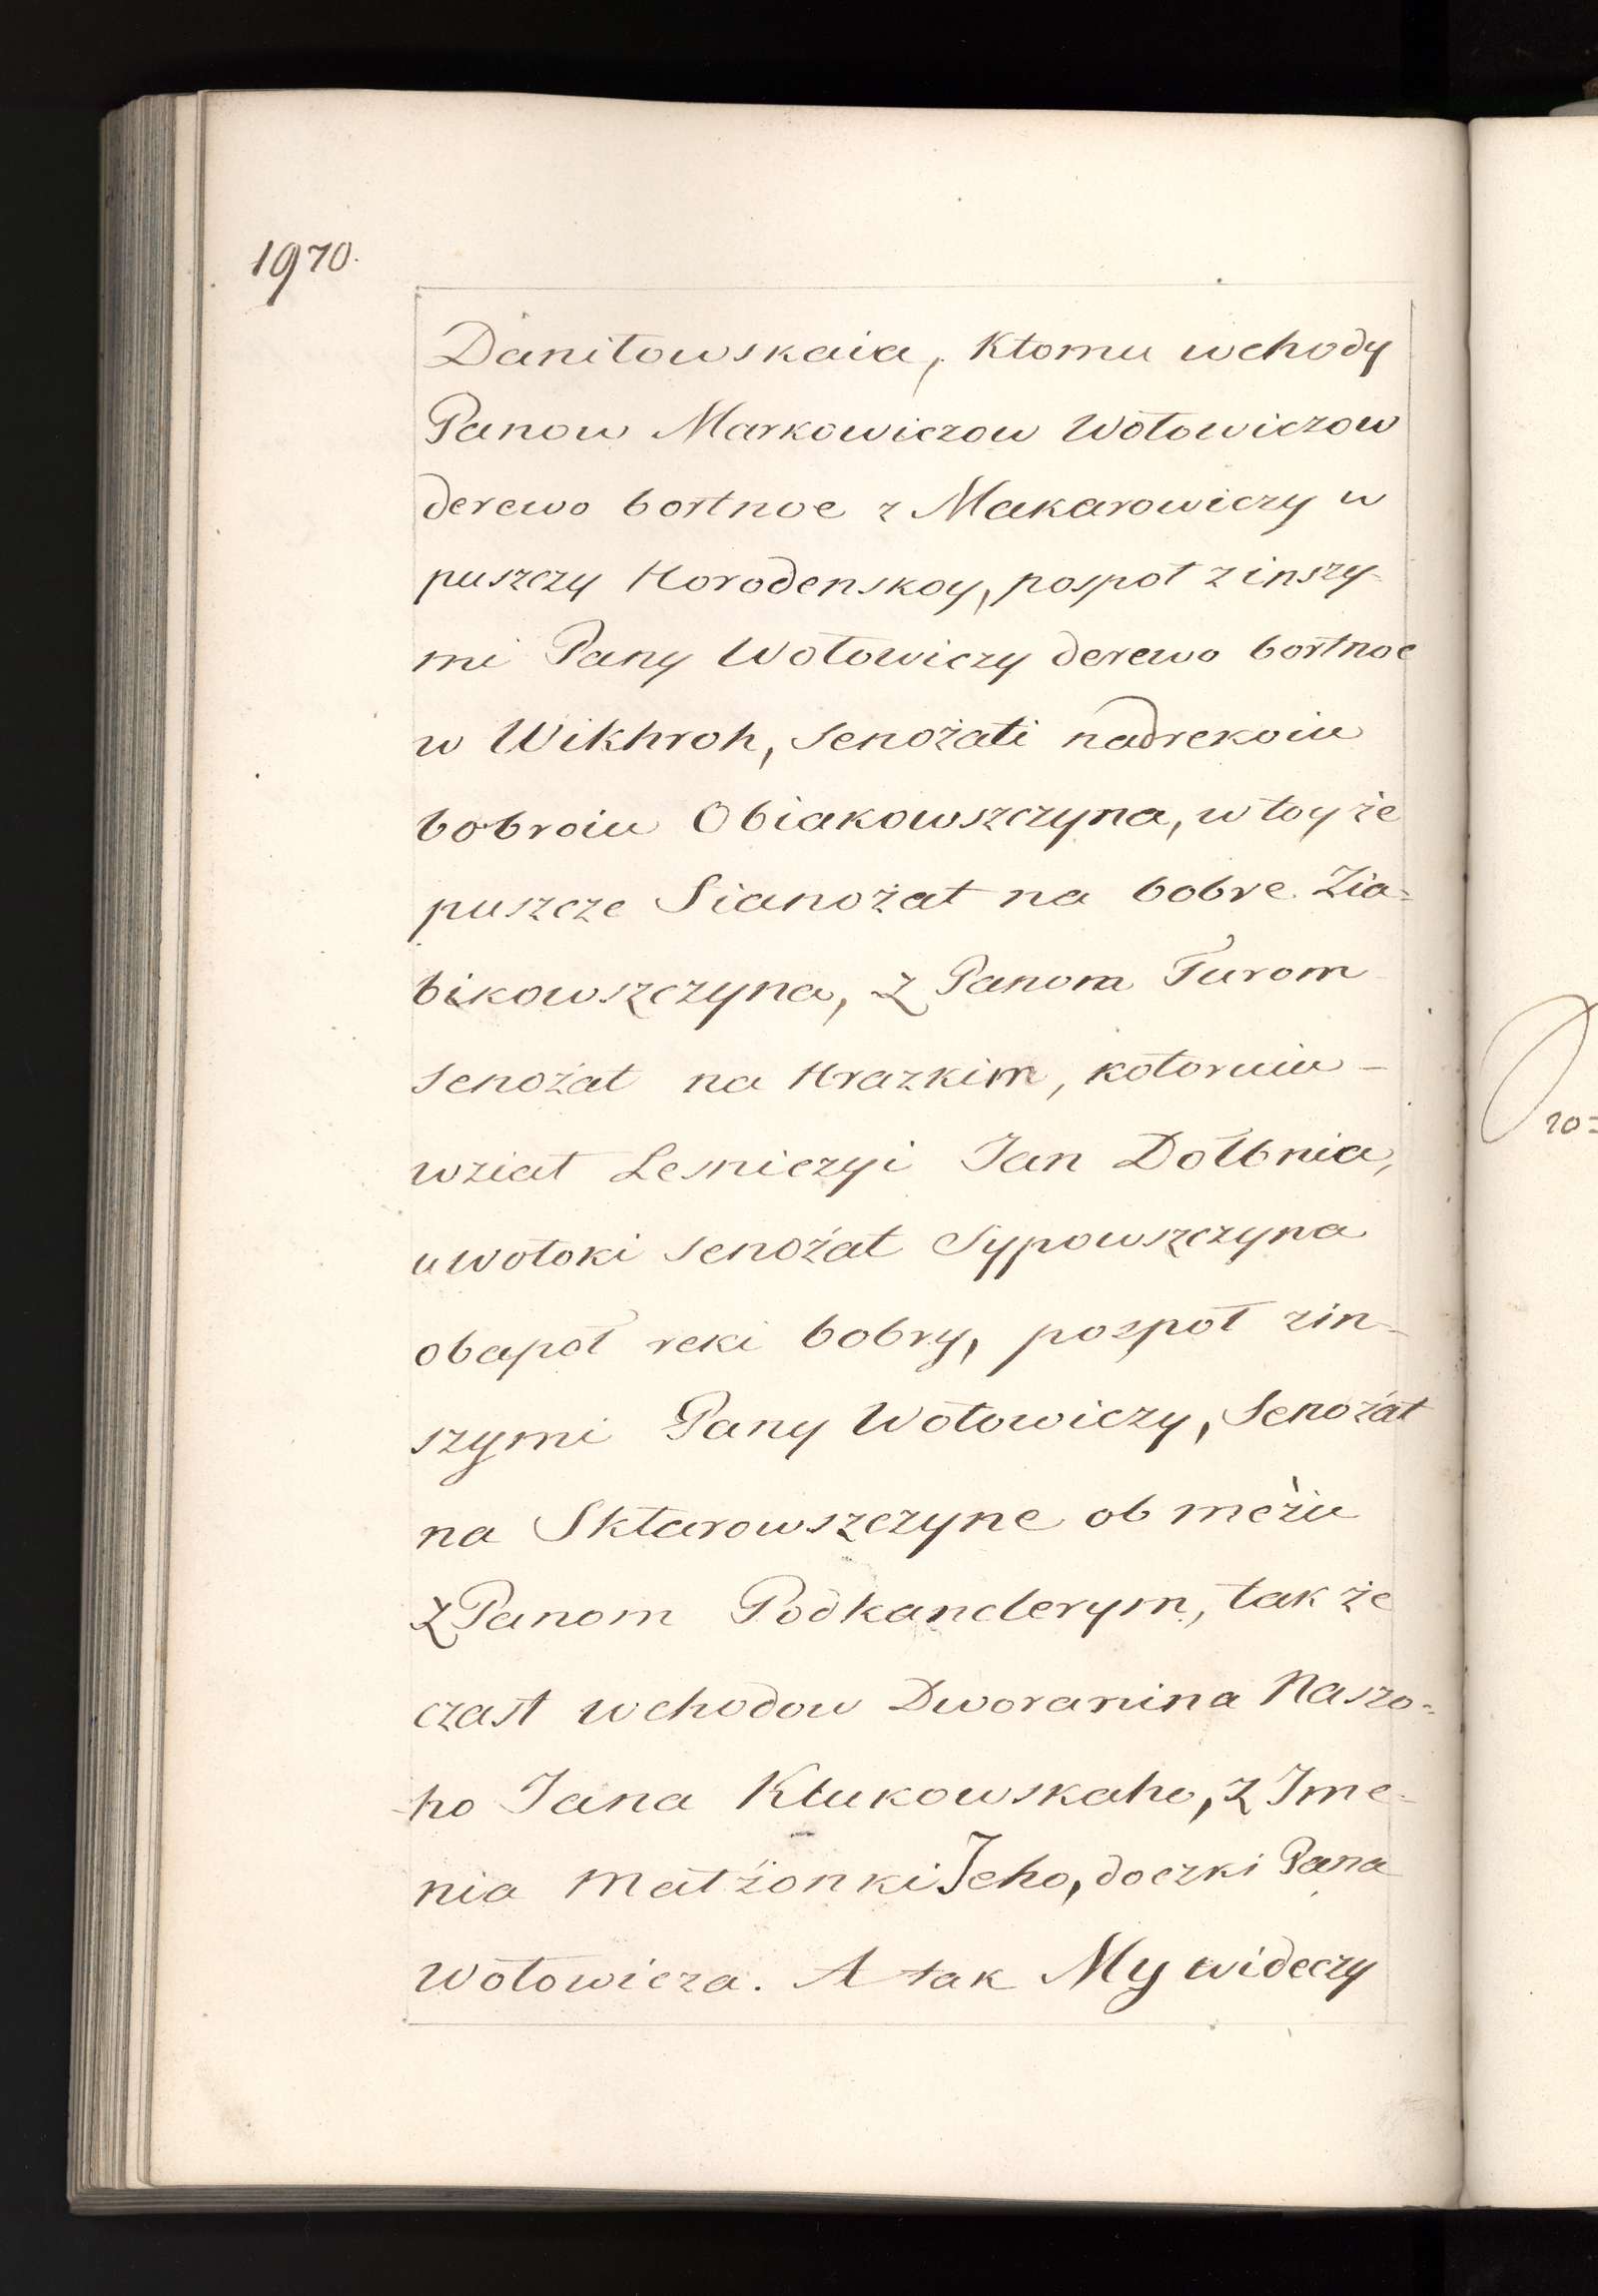 1970.
Daniłowskaia, Ktomu wchody
Panow Markowiczow Wołowiczow
derewo bortnoe z Makarowiczy w
puszczy Horodenskoy, pospoł z inszy-
mi Pany Wołowiczy derewo bortnoe
w Wikhroh, senożati nad rekoiu
bobroiu Obiakowszczyna, w toy że
puszcze Sianożat na bobre Zia=
bikowszczyna, z Panom Turom
senożat na Hrazkim, kotoruiu -
wziat Lesniczyi Jan Dołbnia,
u wołoki senożat Sypowszczyna
obapoł reki bobry, pospoł zin-
szymi Pany Wołowiczy, Senożat
na Skłarowszczyne ob mežu
z Panom Podkanclerym, tak że
czast wchodow Dworanina Naszo=
ho Jana Kłukowskaho, z Jme-
nia Małżonki Jeho, doczki Pana
Wołowicza. A tak My wideczy
ro=